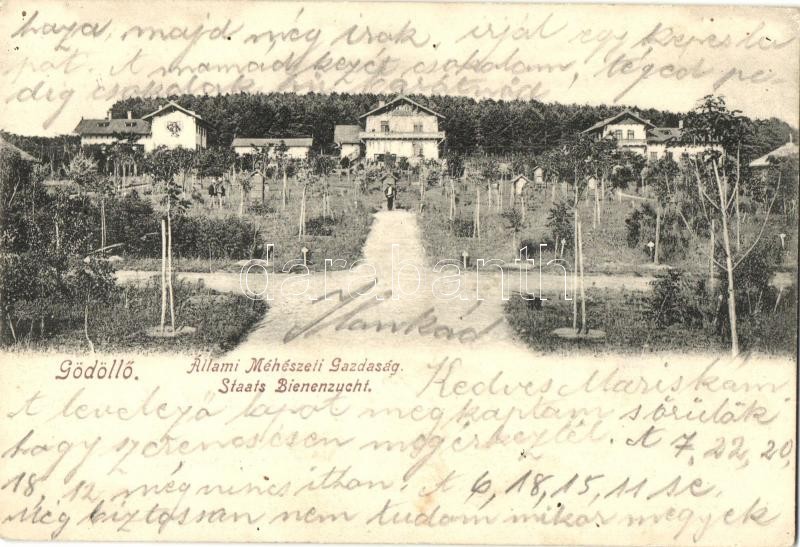 haza, majd még irok, irjál egy képes la
pot. A mamád kezét csokolom, téged pe
dig csokolok
darabanth
Mankád
Gödöllő.
Állami Méhészeti Gazdaság.
Staats Bienenzucht.
Kedves Mariskám
A levelező lapot megkaptam s örülök
hogy szerencsésen megérkeztél. A 7, 22, 20,
18, 12, még nincs itthon. A 6, 18, 15, 11 se.
Még biztossan nem tudom mikor megyek